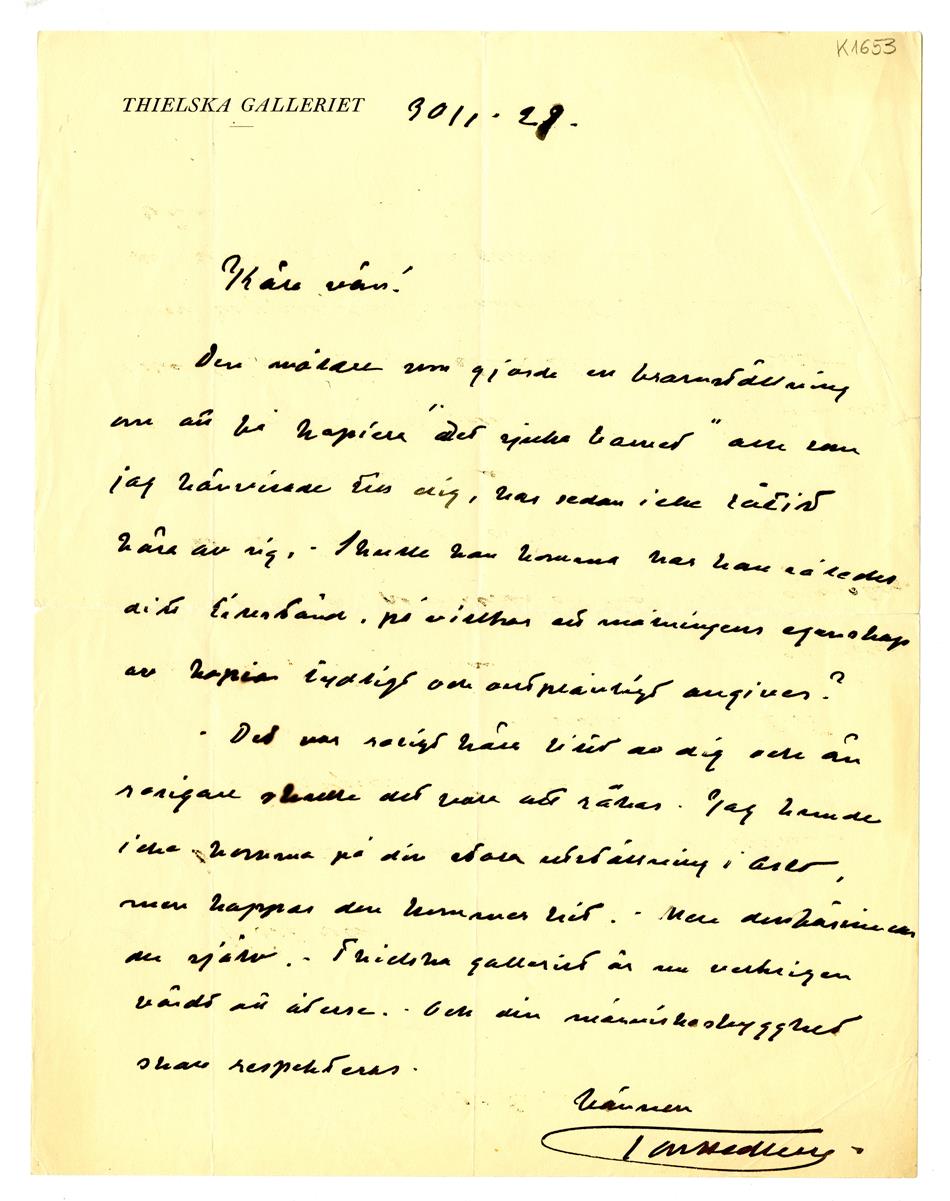 K1653
THIELSKA GALLERIET 30/1 - 28.
Käre vän!
Den målare som gjorde en framställning
om att få kopiera "Det sjuka barnet" och som
jag hänvisade till dig, har sedan icke låtit
höra av sig. - Skulle han komma har han således
ditt tillstånd, på villkor att målningens egenskap
av kopia tydligt och outplånligt angives?
- Det var roligt höra litet av dig och än
roligare skulle det vara att råkas. Jag kunde
icke komma på din stora utställning i
men hoppas den kommer hit. - Men dessförinnan
du själv. - Thielska galleriet är nu verkligen
värdt att återse. - Och din människoskygghet
skall respekteras.
Vännen
Tor Hedberg